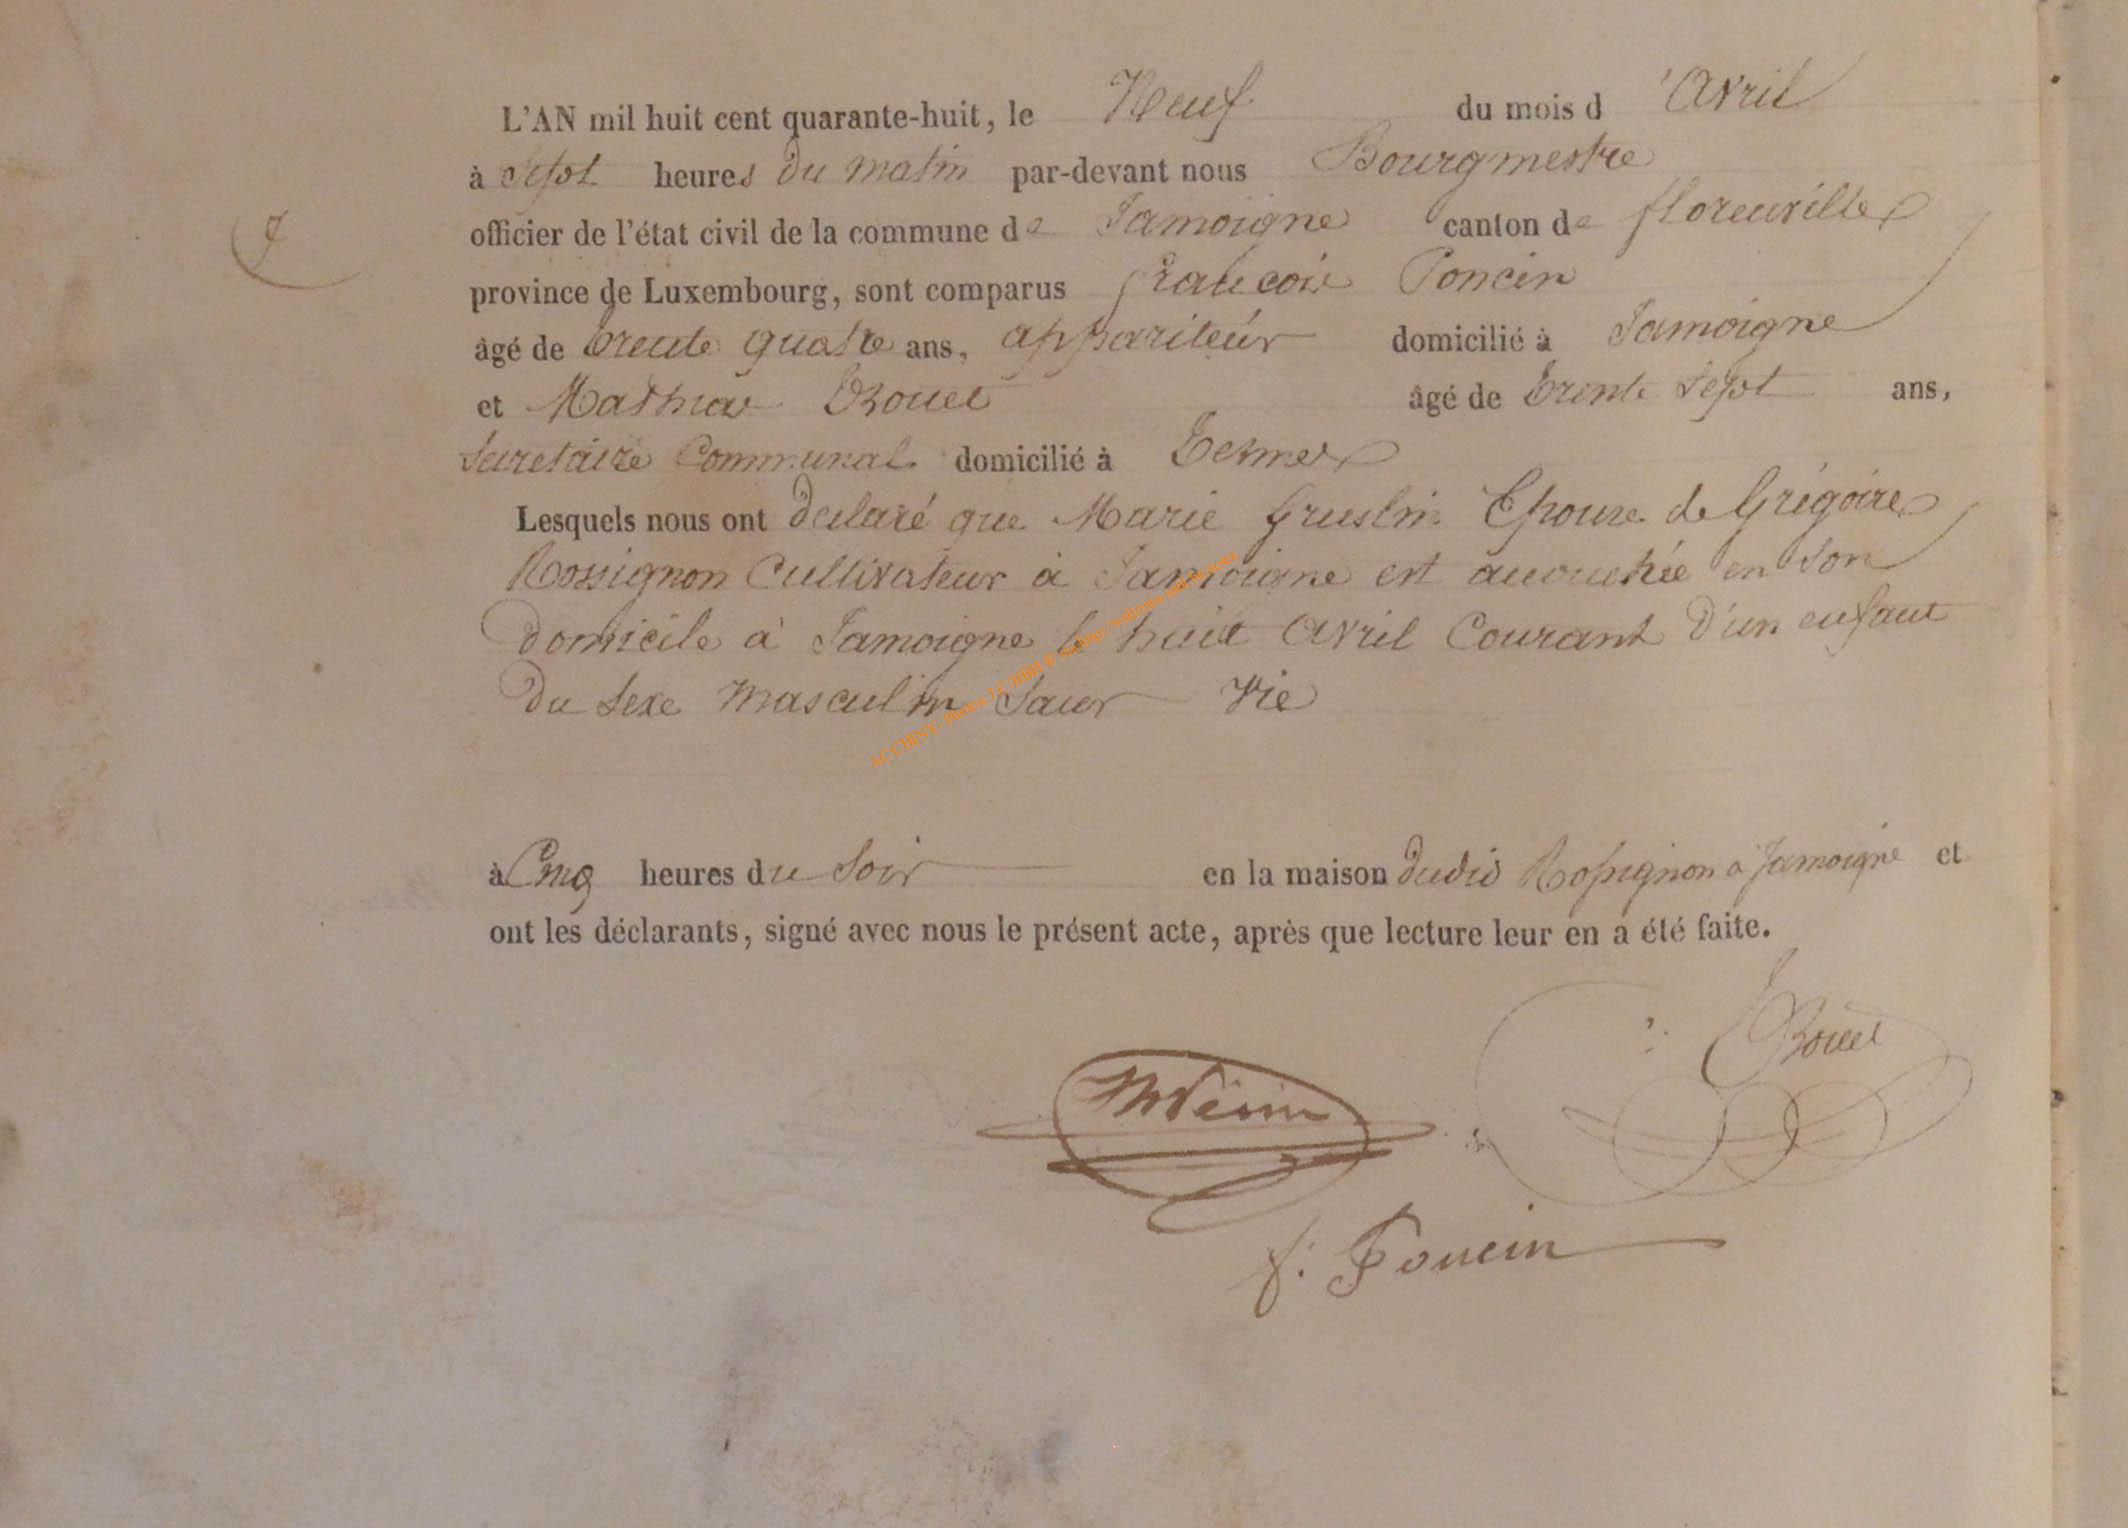 L'AN mil huit cent quarante-huit, le Neuf du mois d'Avril
à Sept heures du matin par-devant nous Bourgmestre
officier de l'état civil de la commune de Jamoigne canton de florenville
province de Luxembourg, sont comparus françois Poncin
âgé de trente quatre ans, appariteur domicilié à Jamoigne
et Mathieu Brouet âgé de trente Sept ans,
Secretaire Communal domicilié à Termes
Lesquels nous ont declaré que Marie Gruslin Epouse de Grégoire
Rossignon Cultivateur à Jamoigne est accouchée en Son
domicile à Jamoigne le huit Avril Courant d'un enfant
du Sexe Masculin Sans Vie
à Cinq heures du Soir en la maison dudit Rossignon a Jamoigne et
ont les déclarants, signé avec nous le présent acte, après que lecture leur en a été faite.
f: Poncin